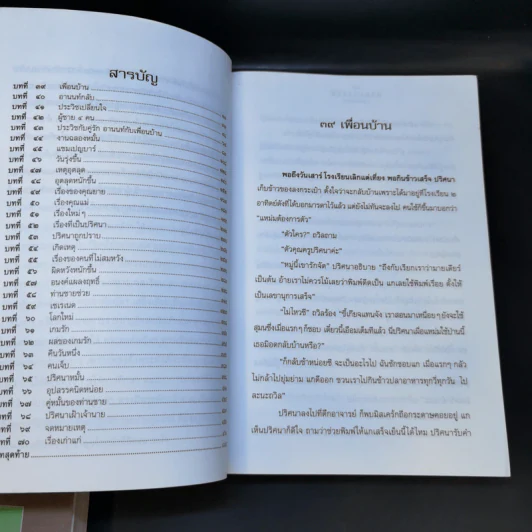 สารบัญ
บทที่ ๓๙ เพื่อนบ้าน
บทที่ ๔๐ อานนท์กลับ
บทที่ ๔๑ ประวิชเปลี่ยนใจ
บทที่ ๔๒ ผู้ชาย ๔ คน
บทที่ ๔๓ ประวิชกับคู่รัก อานนท์กับเพื่อนบ้าน
บทที่ ๔๔ งานฉลองหมั้น
บทที่ ๔๕ แชมเปญบาร์
บทที่ ๔๖ วันรุ่งขึ้น
บทที่ ๔๗ เหตุอุตลุด
บทที่ ๔๘ อุตลุดหนักขึ้น
บทที่ ๔๙ เรื่องของคุณยาย
บทที่ ๕๐ เรื่องคุณแม่
บทที่ ๕๑ เรื่องใหม่ๆ
บทที่ ๕๒ เรื่องที่เป็นปริศนา
บทที่ ๕๓ ปริศนาถูกปราบ
บทที่ ๕๔ เกิดเหตุ
บทที่ ๕๕ เรื่องของคนที่ไม่สมหวัง
บทที่ ๕๖ ผิดหวังหนักขึ้น
บทที่ ๕๗ อนงค์แผลงฤทธิ์
บทที่ ๕๘ ท่านชายช่วย
บทที่ ๕๙ เซเรเนด
บทที่ ๖๐ โลกใหม่
บทที่ ๖๑ เกมรัก
บทที่ ๖๒ ผลของเกมรัก
บทที่ ๖๓ คืนวันหนึ่ง
บทที่ ๖๔ คนเจ็บ
บทที่ ๖๕ ปริศนาหมั้น
บทที่ ๖๖ อุปสรรคนิดหน่อย
บทที่ ๖๗ คู่หมั้นของท่านชาย
บทที่ ๖๘ ปริศนาเฝ้าเจ้านาย
บทที่ ๖๙ จดหมายเหตุ
บทที่ ๗๐ เรื่องเก่าแก่
ทสุดท้าย
๓๙ เพื่อนบ้าน
พอถึงวันเสาร์ โรงเรียนเลิกแต่เที่ยง พอกินข้าวเสร็จ ปริศนา
เก็บข้าวของลงกระเป๋า ตั้งใจว่าจะกลับบ้านเพราะได้มาอยู่ที่โรงเรียน ๒
อาทิตย์ดังที่ได้บอกมารดาไว้แล้ว แต่ยังไม่ทันจะลงไป คนใช้ก็ขึ้นมาบอกว่า
"แหม่มต้องการตัว"
"ตัวใคร?" ถวิลถาม
"ตัวคุณครูปริศนาค่ะ"
"หมู่นี้เขารักจัด" ปริศนาอธิบาย "ถึงกับเรียกเราว่ามายเดียร์
เป็นต้น อ้ายเราไม่ควรไม่เลยว่าพิมพ์ดีดเป็น แกเลยใช้พิมพ์เรื่อย ตั้งให้
เป็นเลขานุการเสร็จ"
"ไม่ไหวซี" ถวิลร้อง
"ก็กลับช้าหน่อยซี จะเป็นอะไรไป ฉันชักชอบแก เมื่อแรกๆ กลัว
ไม่กล้าไปยุ่มย่าม แกดีออก ชวนเราไปกินข้าวปลาอาหารทุกวี่ทุกวัน ไป
ละนะถวิล"
ปริศนาลงไปที่ตึกอาจารย์ ก็พบมิสเคร์กถือกระดาษคอยอยู่ แก
เห็นปริศนาก็ดีใจ ถามว่าช่วยพิมพ์ให้แกเสร็จเย็นนี้ได้ไหม ปริศนารับคำ